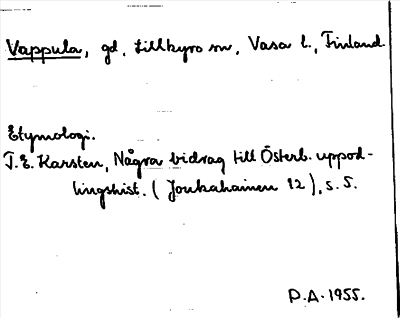 Vappula, gd, Lillkyro sn, Vasa l., Finland
Etymologi.
T.E. Karsten, Några bidrag till Österb. uppod-
lingshist. (Joukahainen 12), s. 5.
P.A. 1955.